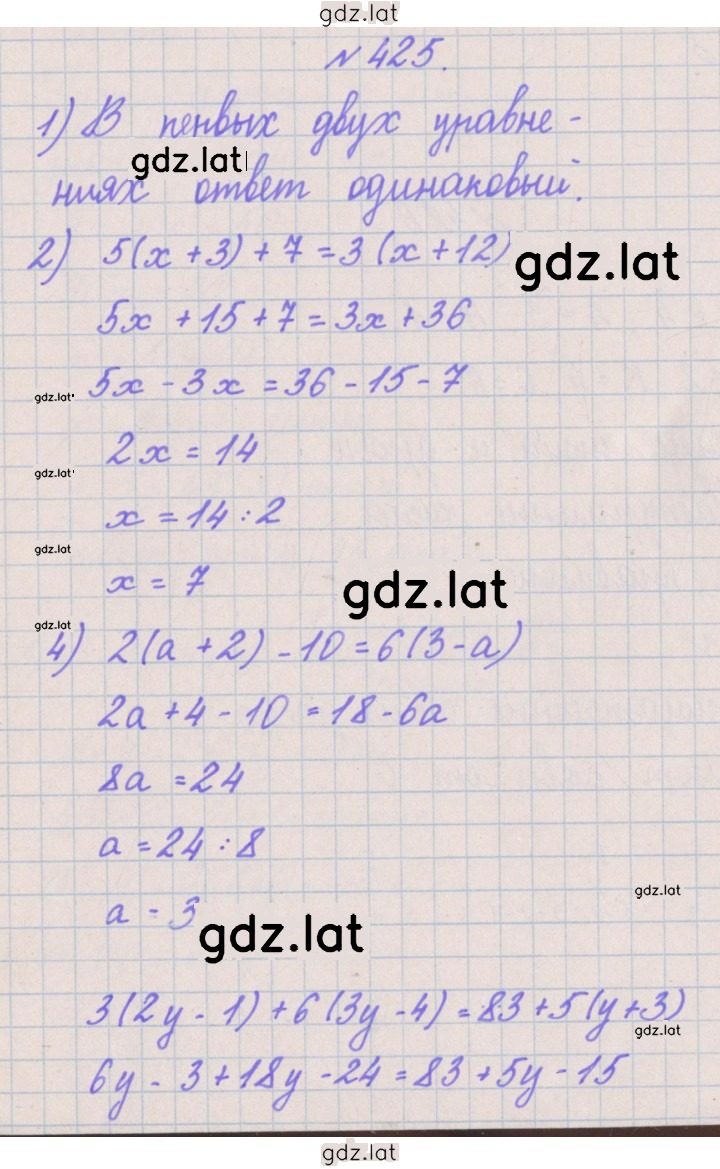 gdz.lat
№ 425.
1) В первых двух уравне -
gdz.lat
ниях ответ одинаковый.
2) 5(x + 3) + 7 = 3 (x + 12)
gdz.lat
5x + 15 + 7 = 3x + 36
5x - 3x = 36 - 15 - 7
gdz.lat
2x = 14
gdz.lat
x = 14 : 2
gdz.lat
x = 7
gdz.lat
gdz.lat
4) 2(a + 2) - 10 = 6(3 - a)
2a + 4 - 10 = 18 - 6a
8a = 24
a = 24 : 8
gdz.lat
a = 3
gdz.lat
3(2y - 1) + 6(3y - 4) = 83 + 5(y + 3)
gdz.lat
6y - 3 + 18y - 24 = 83 + 5y - 15
gdz.lat